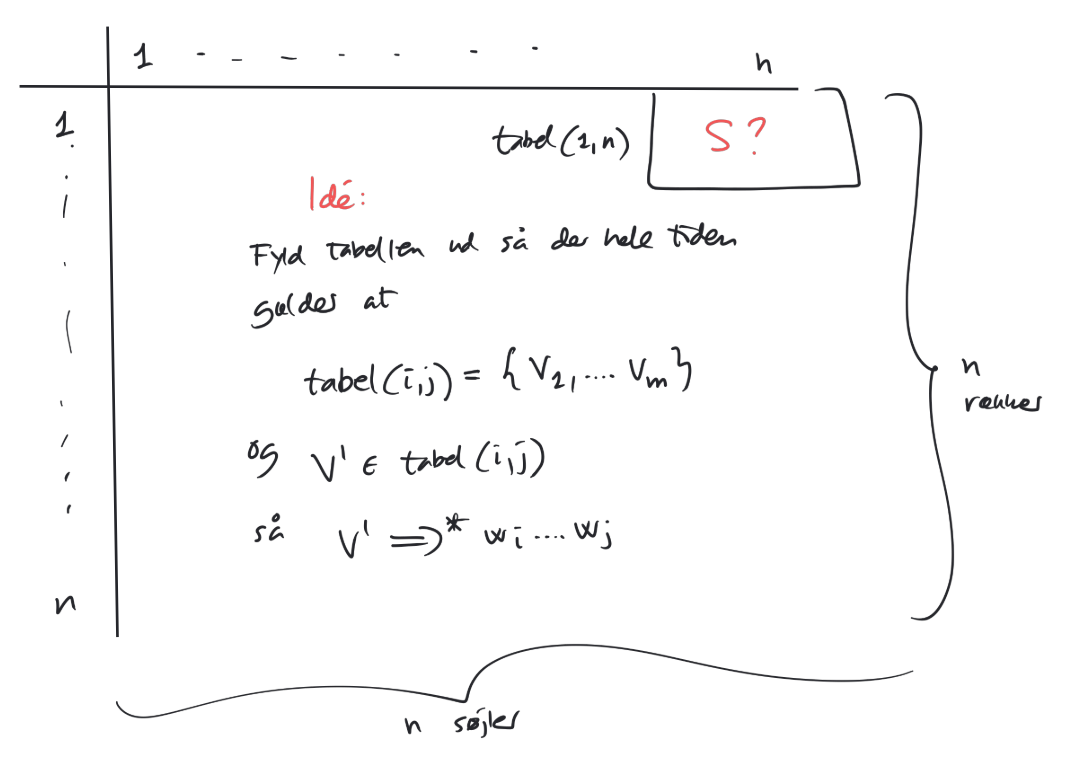 1 - - - - - - - n
1
tabel(1,n) S?
Idé:
Fyld tabellen ud så der hele tiden
gælder at
tabel(i,j) = { V1, .... Vm }
n
rækker
og V' ∈ tabel (i,j)
så V' ⇒* wi .... wj
n
n søjler